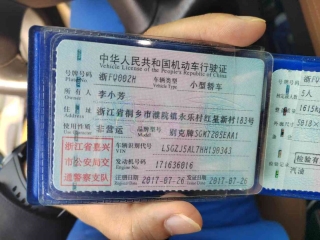 中华人民共和国机动车行驶证
Vehicle License of the People's Republic of China
号牌号码 浙FQ08ZH 车辆类型 小型轿车
Plate No. Vehicle Type
所有人 李小芳
Owner
住址 浙江省桐乡市濮院镇永乐村红星新村183号
Address
使用性质 非营运 品牌型号 别克牌SGM7205EAA1
浙江省嘉兴
市公安局交
通警察支队
车辆识别代号
VIN
发动机号码 171636016
注册日期 2017-07-26 发证日期 2017-07-26
5人
汽油